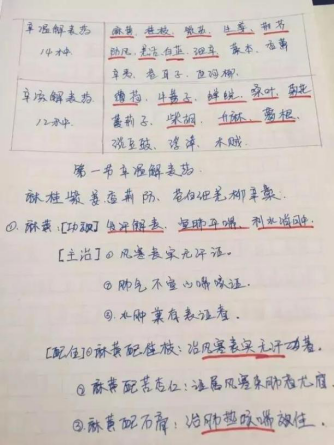 辛温解表药 麻黄、桂枝、紫苏、生姜、荆芥
14味 防风、羌活、白芷、细辛、藁本、香薷
辛夷、苍耳子、西河柳
辛凉解表药 薄荷、牛蒡子、蝉蜕、桑叶、菊花
12味 蔓荆子、柴胡、升麻、葛根
淡豆豉、浮萍、木贼
第一节辛温解表药
麻桂紫姜香荆防、羌白细藁柳辛苍
①麻黄:[功效]发汗解表、宣肺平喘、利水消肿.
[主治]①风寒表实无汗证.
②肺气不宣的喘咳证.
③水肿兼有表证者.
[配伍]①麻黄配桂枝:治风寒表实无汗功著.
②麻黄配苦杏仁:证属风寒束肺者尤宜.
③麻黄配石膏:治肺热咳喘效佳.